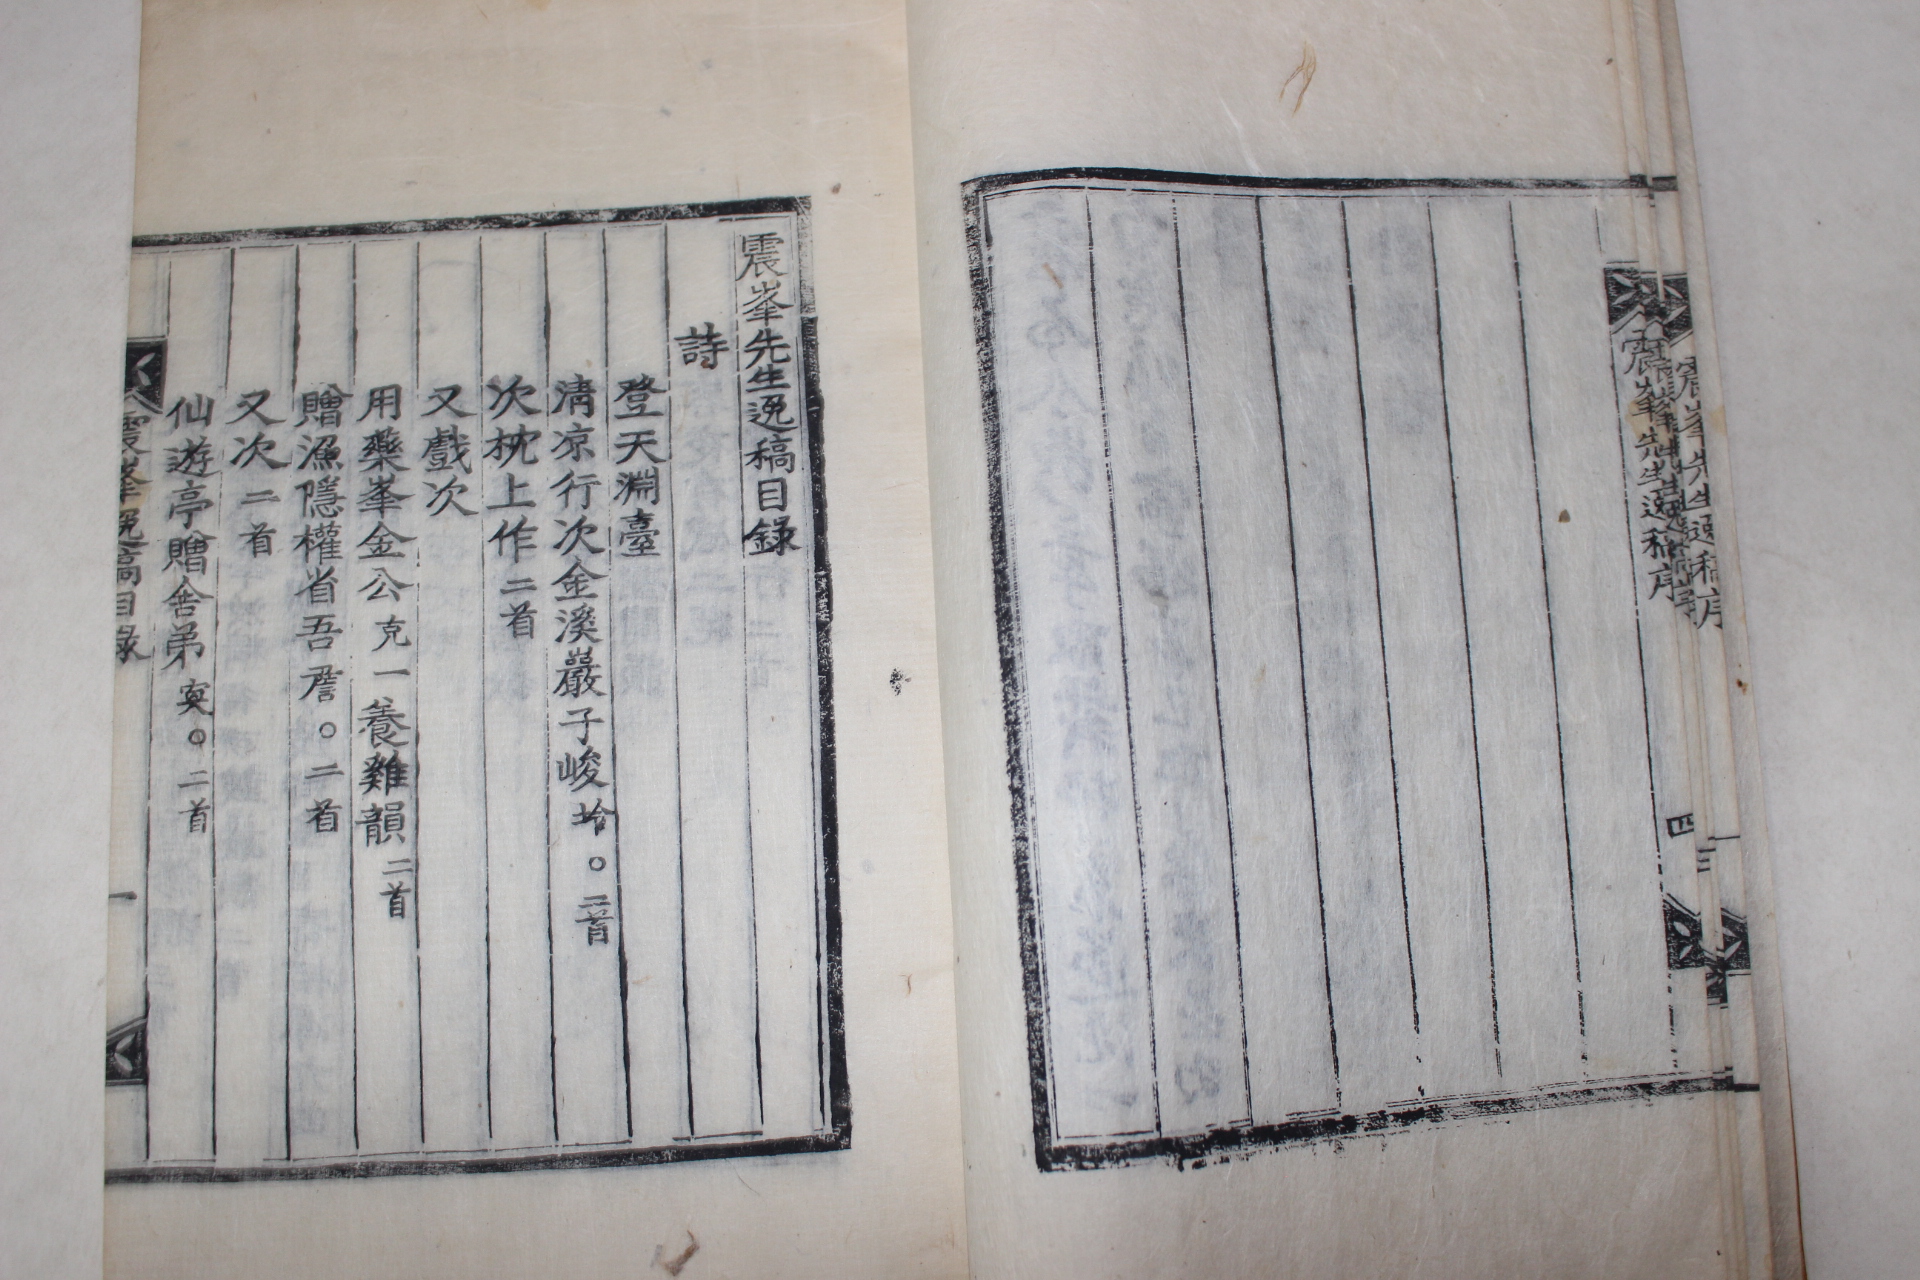 震峯先生逸稿序
四
三
震峯先生逸稿目錄
詩
登天淵臺
淸凉行次金溪巖子峻坽○二首
次枕上作二首
又戲次
用藥峯金公克一養雞韻二首
贈漁隱權省吾䧹○二首
又次二首
仙遊亭贈舍弟寏○二首
震峯逸稿目錄
一